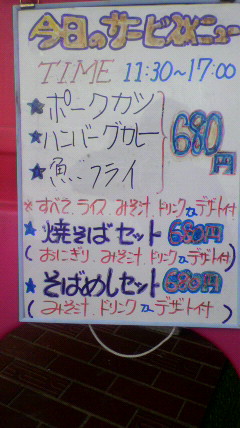 今日のサービスメニュー
TIME 11:30~17:00
★ポークカツ
★ハンバーグカレー
★魚フライ
680円
※すべて、ライス、みそ汁、ドリンク又はデザート付
★焼そばセット 680円
(おにぎり、みそ汁、ドリンク又はデザート付)
★そばめしセット 680円
(みそ汁、ドリンク又はデザート付)